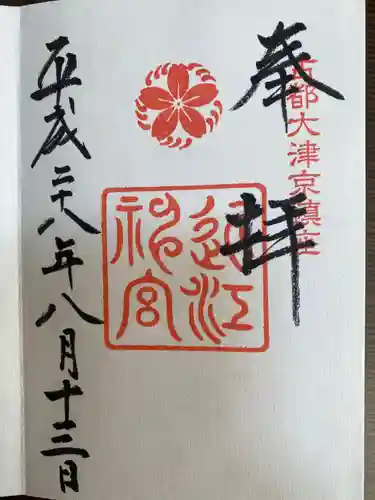 奉拝
古都大津京鎮座
近江神宮
平成二十八年八月十三日